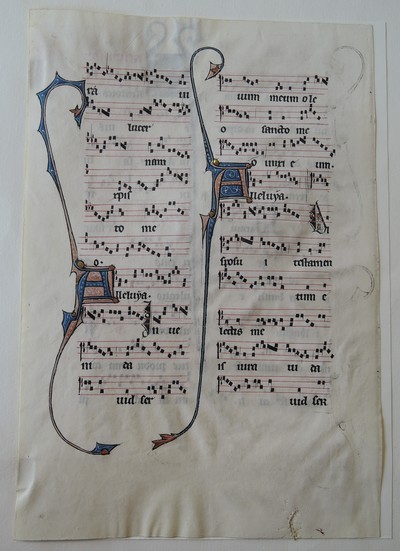 ra ui
lucer
nam
xpis
to me
o.
lleluya.
Inue
ni da
uid ser
uum meum ole
o sancto me
o unxi e um.
lleluya.
Di
sposui i testamen
tum e
lectis me
is iura ui da
uid ser